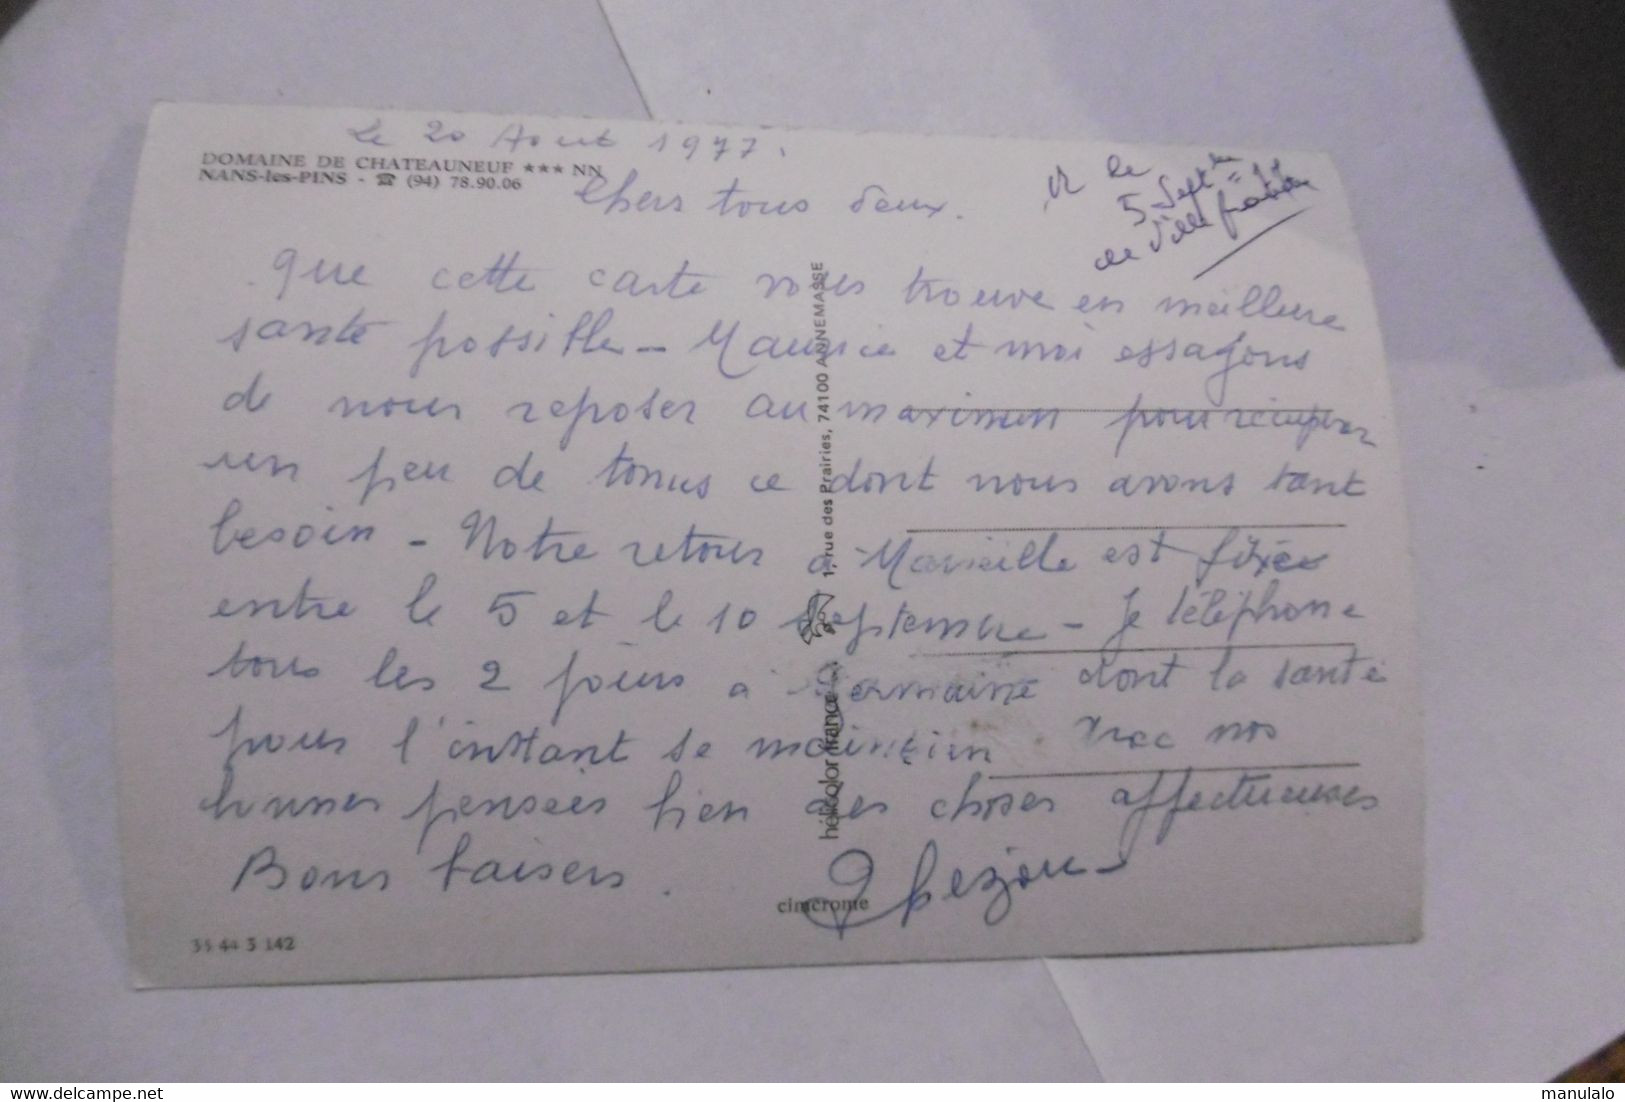 Le 20 Aout 1977.
DOMAINE DE CHATEAUNEUF *** NN
NANS-les-PINS - ☎ (94) 78.90.06
Chers tous deux.
R le
5 Sept
de Ville
Que cette carte vous trouve en meilleure
santé possible - Maurice et moi essayons
de nous reposer au maximum pour récupérer
un peu de tonus ce dont nous avons tant
besoin - Notre retour à Marseille est fixée
entre le 5 et le 10 Septembre - Je téléphone
tous les 2 jours à Germaine dont la santé
pour l'instant se maintien Avec nos
bonnes pensées bien des choses affectueuses
Bons baisers.
1, rue des Prairies, 74100 ANNEMASSE
hélicolor france
cimcrome
35 44 3 142
delcampe.net
manulalo